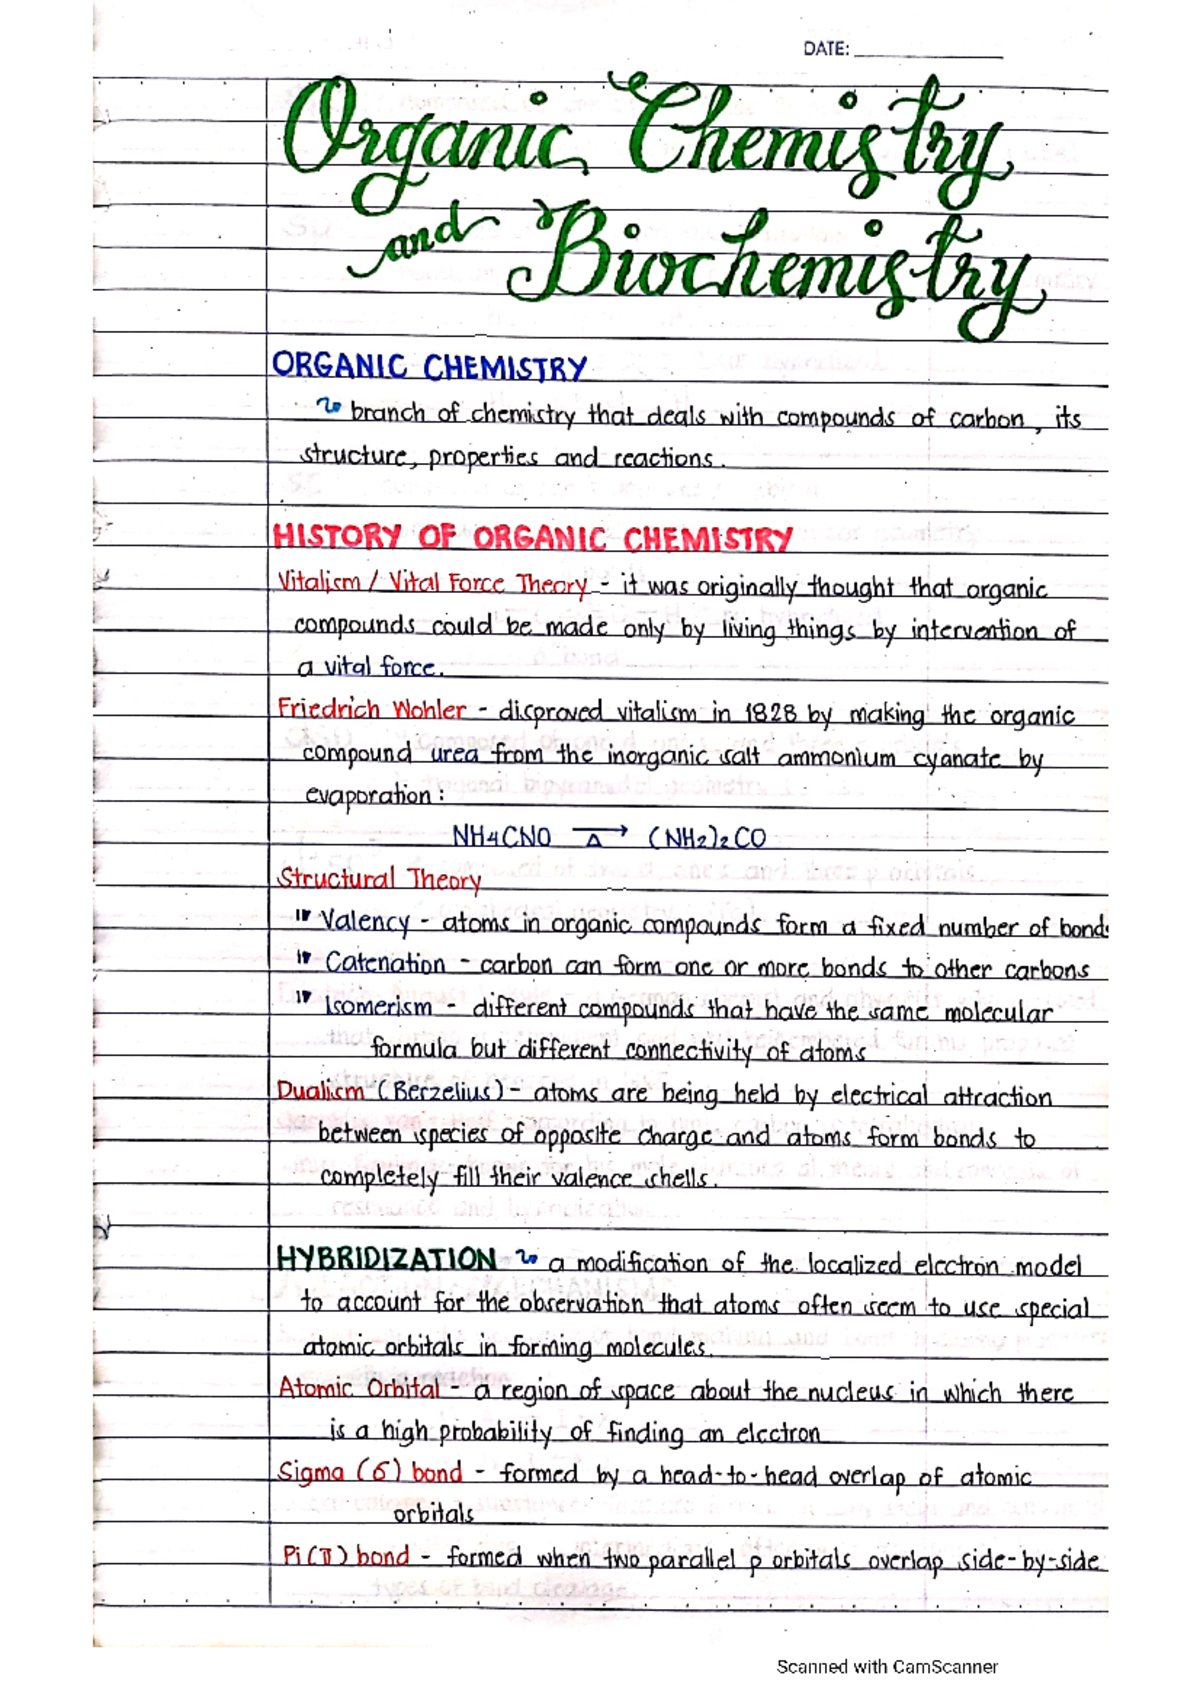 DATE:
Organic Chemistry
and Biochemistry
ORGANIC CHEMISTRY
branch of chemistry that deals with compounds of carbon, its
structure, properties and reactions.
HISTORY OF ORGANIC CHEMISTRY
Vitalism / Vital Force Theory - it was originally thought that organic
compounds could be made only by living things by intervention of
a vital force.
Friedrich Wohler - disproved vitalism in 1828 by making the organic
compound urea from the inorganic salt ammonium cyanate by
evaporation:
NH4CNO →Δ (NH2)2CO
Structural Theory
Valency - atoms in organic compounds form a fixed number of bonds
Catenation - carbon can form one or more bonds to other carbons
Isomerism - different compounds that have the same molecular
formula but different connectivity of atoms
Dualism (Berzelius) - atoms are being held by electrical attraction
between species of opposite charge and atoms form bonds to
completely fill their valence shells.
HYBRIDIZATION a modification of the localized electron model
to account for the observation that atoms often seem to use special
atomic orbitals in forming molecules.
Atomic Orbital - a region of space about the nucleus in which there
is a high probability of finding an electron
Sigma (σ) bond - formed by a head-to-head overlap of atomic
orbitals
Pi (π) bond - formed when two parallel p orbitals overlap side-by-side
Scanned with CamScanner